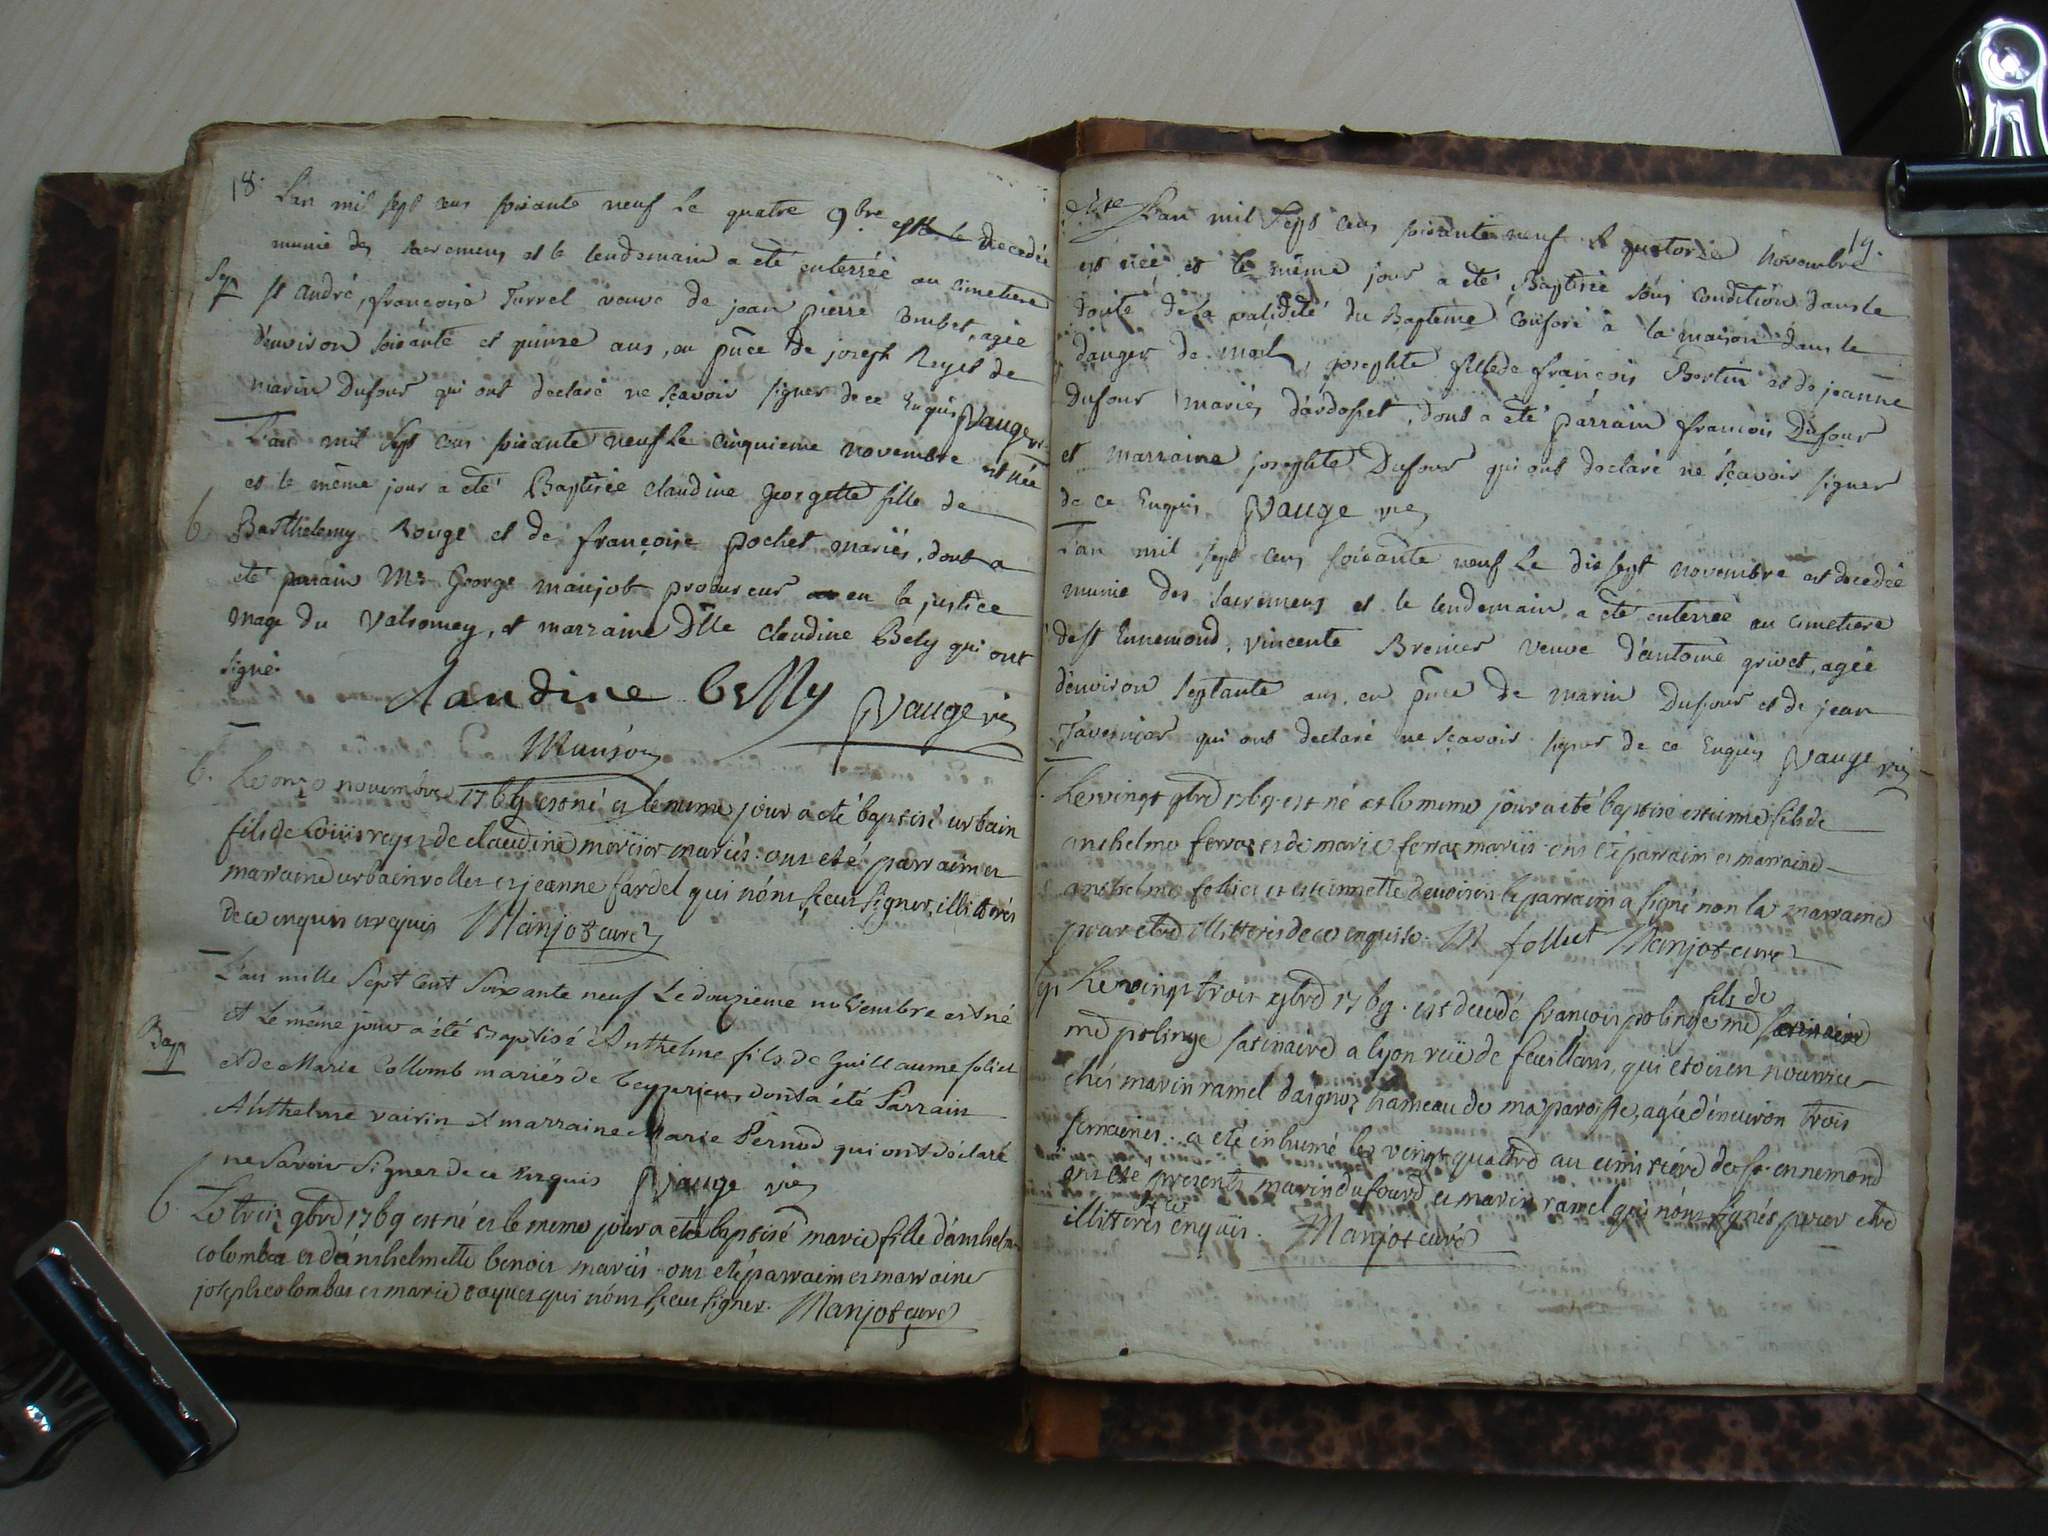 18.
L'an mil sept cens soixante neuf le quatre 9bre est decedée
munie des sacremens et le lendemain a été enterrée au cimetiere
Sep
st andré, françoise Turrel veuve de jean pierre ombet, agée
d'environ soixante et quinze ans, en pñce de joseph Reyet de
marin Dufour qui ont declaré ne sçavoir signer de ce Enquis Vauge vic
L'an mil sept cens soixante neuf Le cinquieme novembre est née
et le même jour a été Baptisée claudine georgette fille de
b
Barthelemy Rouge et de françoise pochet mariés, dont a
été parrain Mr George manjot procureur en la justice
mage du Valromey, et marraine Dlle claudine Bely qui ont
signé.
Claudine belly Vauge vic
Manjot
b. Le onze novembre 1769 est né et le meme jour a eté baptisé urbain
fils de Loüis reyet de claudine mercier mariés. ont eté parrain et
marraine urbain rollet et jeanne fardel qui n'ont sceu signer, illitterés
de ce enquis et requis Manjot curé
L'an mille Sept Cent Soixante neuf Le douzieme novembre est né
et Le même jour a été Baptisé Anthelme fils de Guillaume foliet
Bap
et de Marie Collomb mariés de Ceyzerieu, dont a été Parrain
Anthelme vairin et marraine Marie Pernod qui ont déclaré
ne Savoir Signer de ce Enquis Vauge vic
b Le treiz 9bre 1769 est né et le meme jour a eté baptisé marie fille d'anthelme
colomba et d'anthelmette benoit mariés ont eté parrain et marraine
joseph colombat et marie qui n'ont sceu signer. Manjot curé
19.
L'an mil sept cens soixante neuf le quatorze Novembre
est née et le même jour a été Baptisée sous condition dans le
doute de la validité du Bapteme conferé à la maison dans le
danger de mort, josephte fille de françois Bertin et de jeanne
dufour mariés d'ardosset, dont a été parrain françois Dufour
et marraine josephte Dufour qui ont declaré ne sçavoir signer
de ce Enquis Vauge vic
L'an mil sept cens soixante neuf Le dix sept novembre est decedée
munie des sacremens et le lendemain a été enterrée au cimetiere
de st Ennemond, vincente Brenier veuve d'antoine grivet, agée
d'environ septante ans, en pñce de marin Dufour et de jean
Tavernier qui ont declaré ne sçavoir signer de ce Enquis Vauge vic
Le vingt 9bre 1769 est né et le meme jour a eté baptisé etienne fils de
anthelme ferraz et de marie ferraz mariés ont eté parrain et marraine
anthelme folliet et etiennette le parrain a signé non la marraine
pour etre illitterée de ce enquise. M follut Manjot curé
Sep Le vingt trois 9bre 1769. est decedé françois polinge fils de
me polinge satinaire a lyon rüe de feuillans, qui etoit en nourrice
chés marin ramel d'aignoz hameau de ma paroisse, agé d'environ trois
semaines. a eté inhumé le vingt quatre au cimitiere de st ennemond
ont eté presents marin dufour et marin ramel qui n'ont signés pour etre
illitterés de ce enquis. Manjot curé